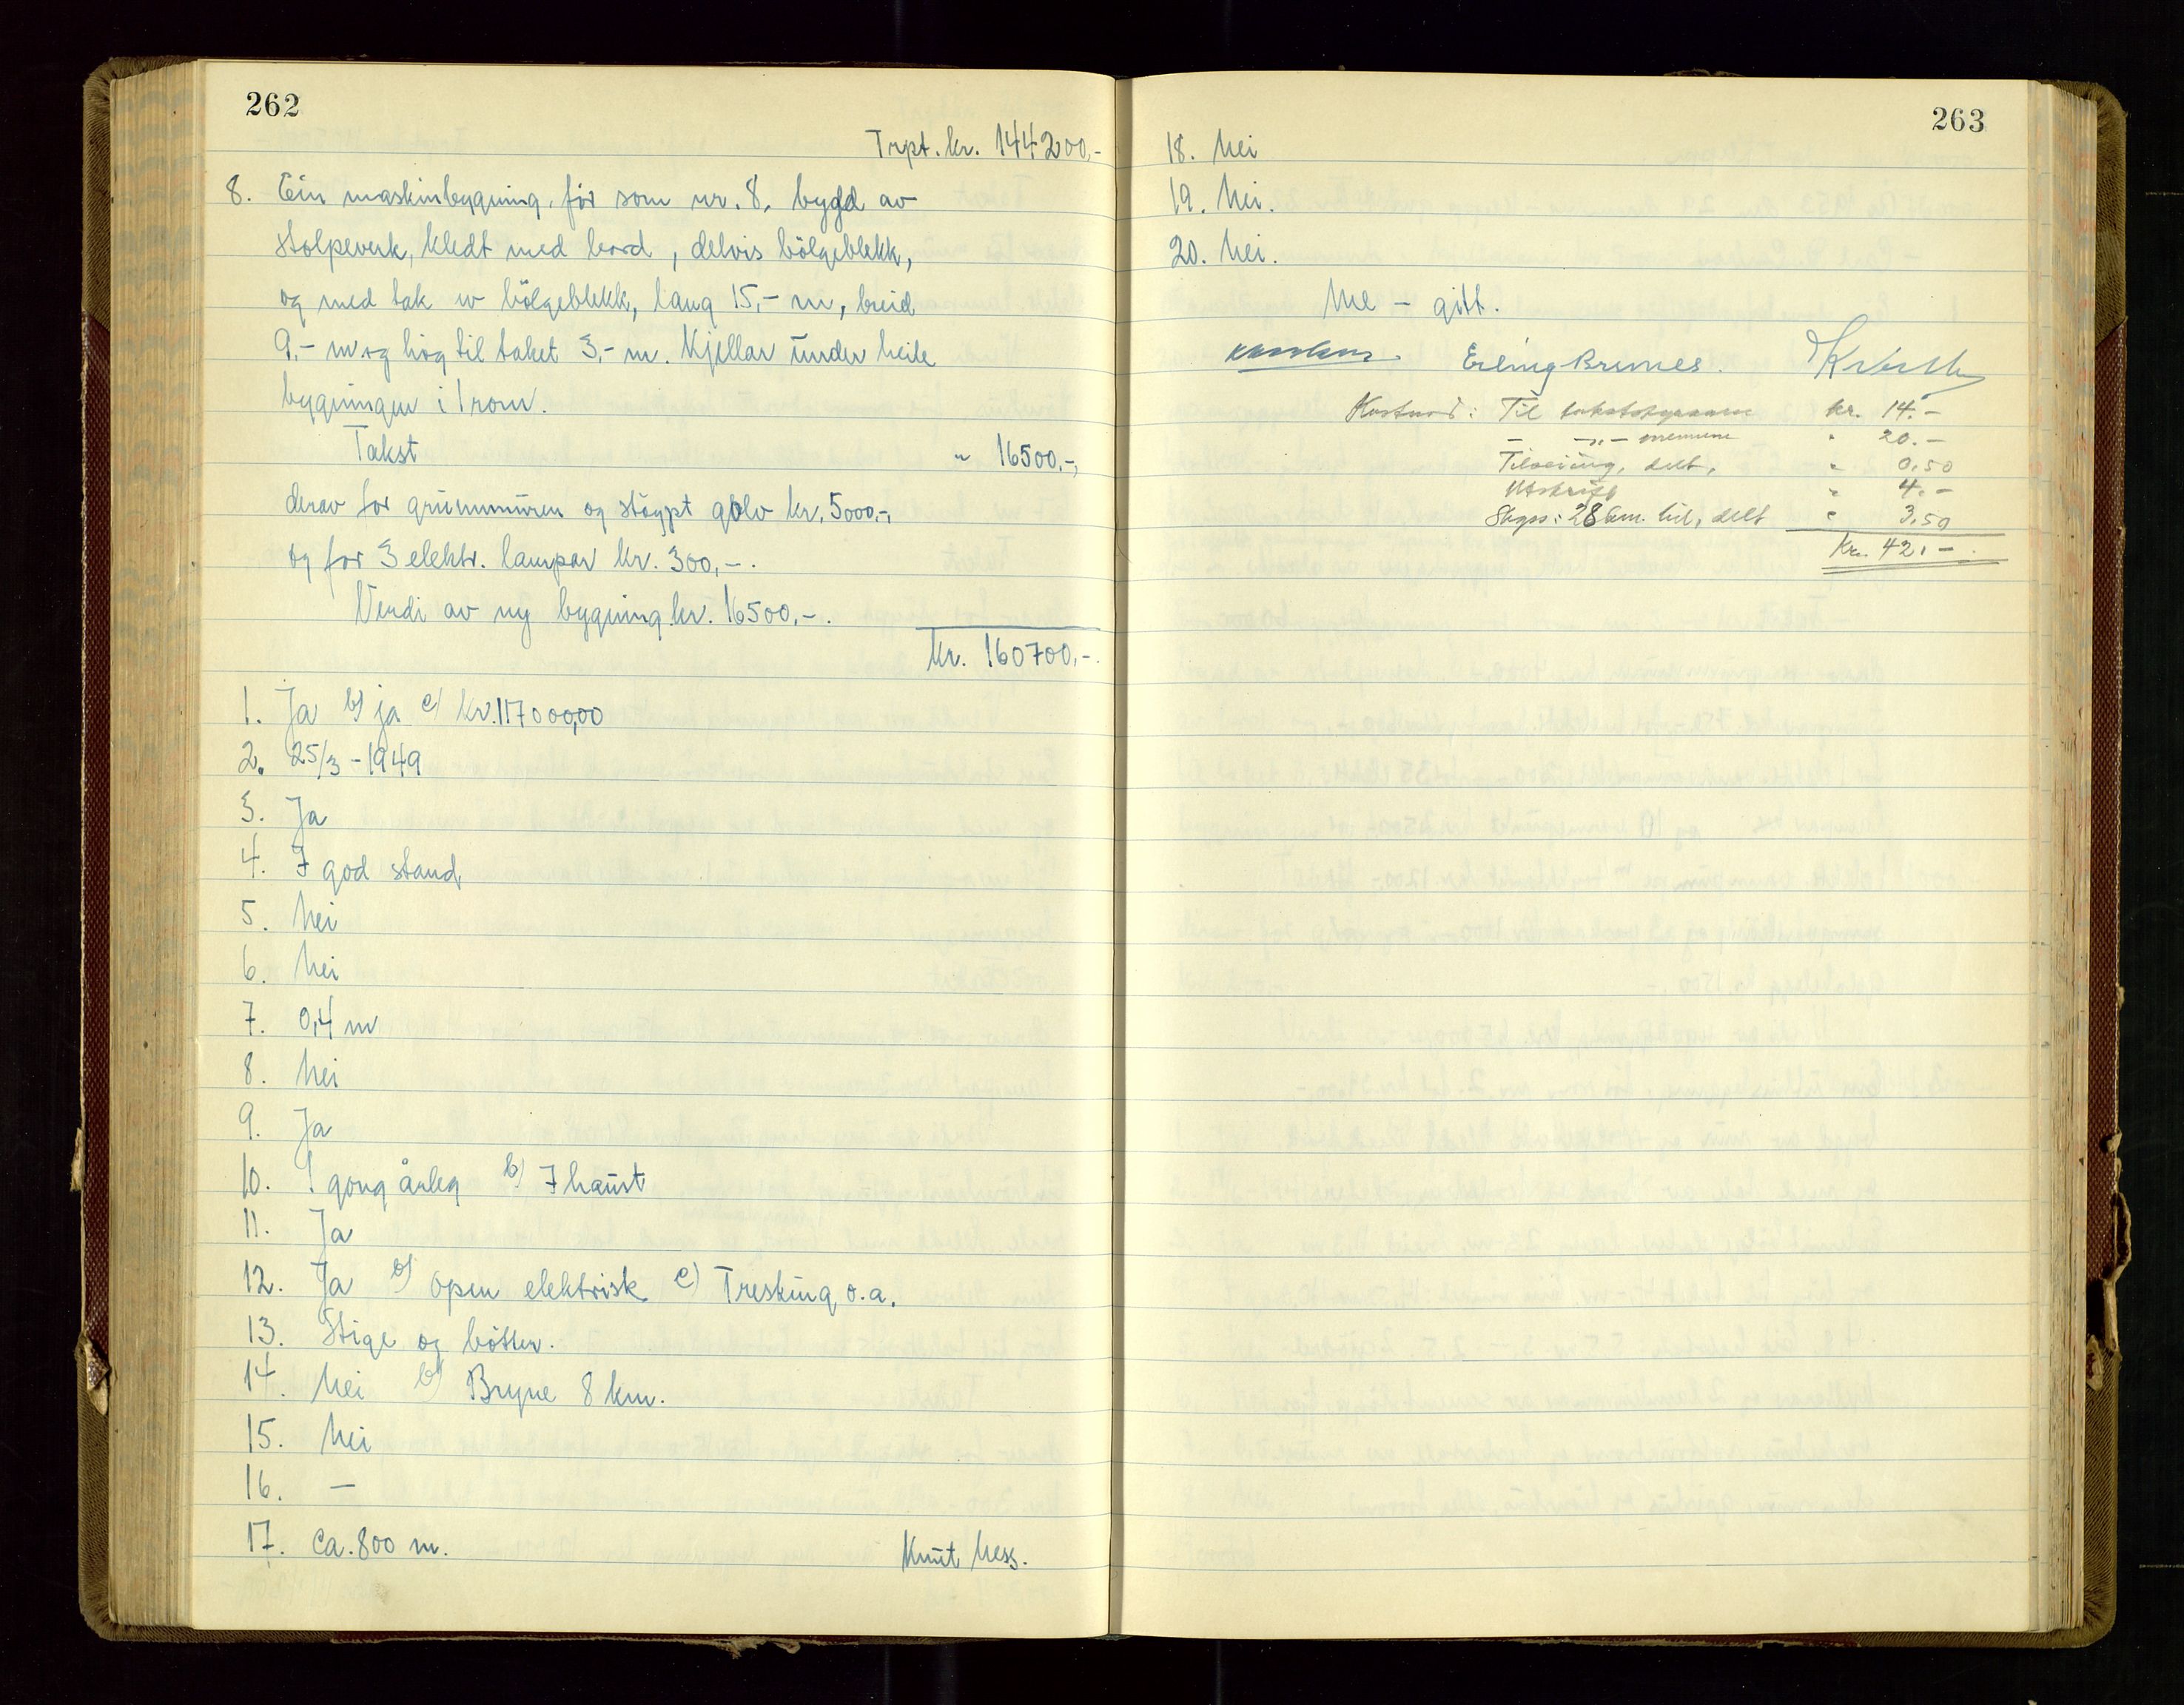 262
Trpt. kr. 144200,-
8. Ein maskinbygning, för som nr. 8, bygd av
stolpeverk, kledt med bord, delvis bölgeblekk,
og med tak av bölgeblekk, lang 15,- m, breid
9,- m og hög til taket 3,- m. Kjellar under heile
bygningen i 1 rom.
Takst " 16500,-,
derav for grunnmuren og stöypt golv kr. 5000,-,
og for 3 elektr. lampar kr. 300,-.
Verdi av ny bygning kr. 16500,-.
Kr. 160700,-.
1. Ja b) ja c) Kr. 117000,00
2. 25/3 - 1949
3. Ja
4. I god stand,
5. Nei
6. Nei
7. 0,4 m
8. Nei
9. Ja
10. 1 gong årleg b) I haust
11. Ja
12. Ja b) Open elektrisk c) Tresking o.a.
13. Stige og bötter.
14. Nei b) Bryne 8 km.
15. Nei
16. —
17. Ca. 800 m.
Knut Ness.
263
18. Nei
19. Nei.
20. Nei.
Ne - gitt.
Erling Brunes.
Kostnad: Til takstskjønnarar kr. 14.-
- -"- mennene " 20.-
Tilseiing, delt, " 0,50
Utskrift " 4.-
Skyss: 28 km. bil, delt " 3,50
Kr. 42,-.